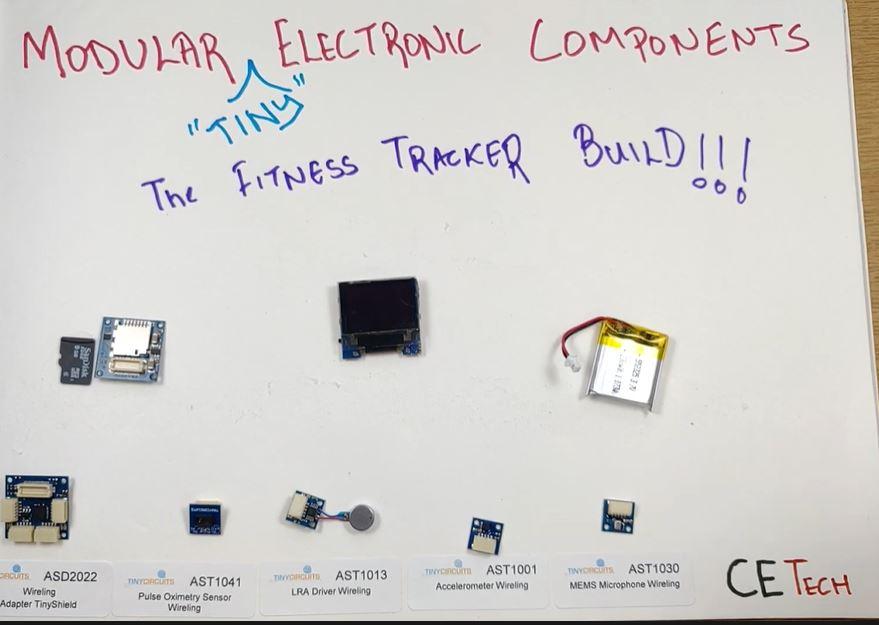 MODULAR ELECTRONIC COMPONENTS
"TINY"
The FITNESS TRACKER BUILD!!!
SanDisk
ASD2022
Wireling
Adapter TinyShield
TINYCIRCUITS AST1041
Pulse Oximetry Sensor
Wireling
TINYCIRCUITS AST1013
LRA Driver Wireling
TINYCIRCUITS AST1001
Accelerometer Wireling
TINYCIRCUITS AST1030
MEMS Microphone Wireling
CETECH